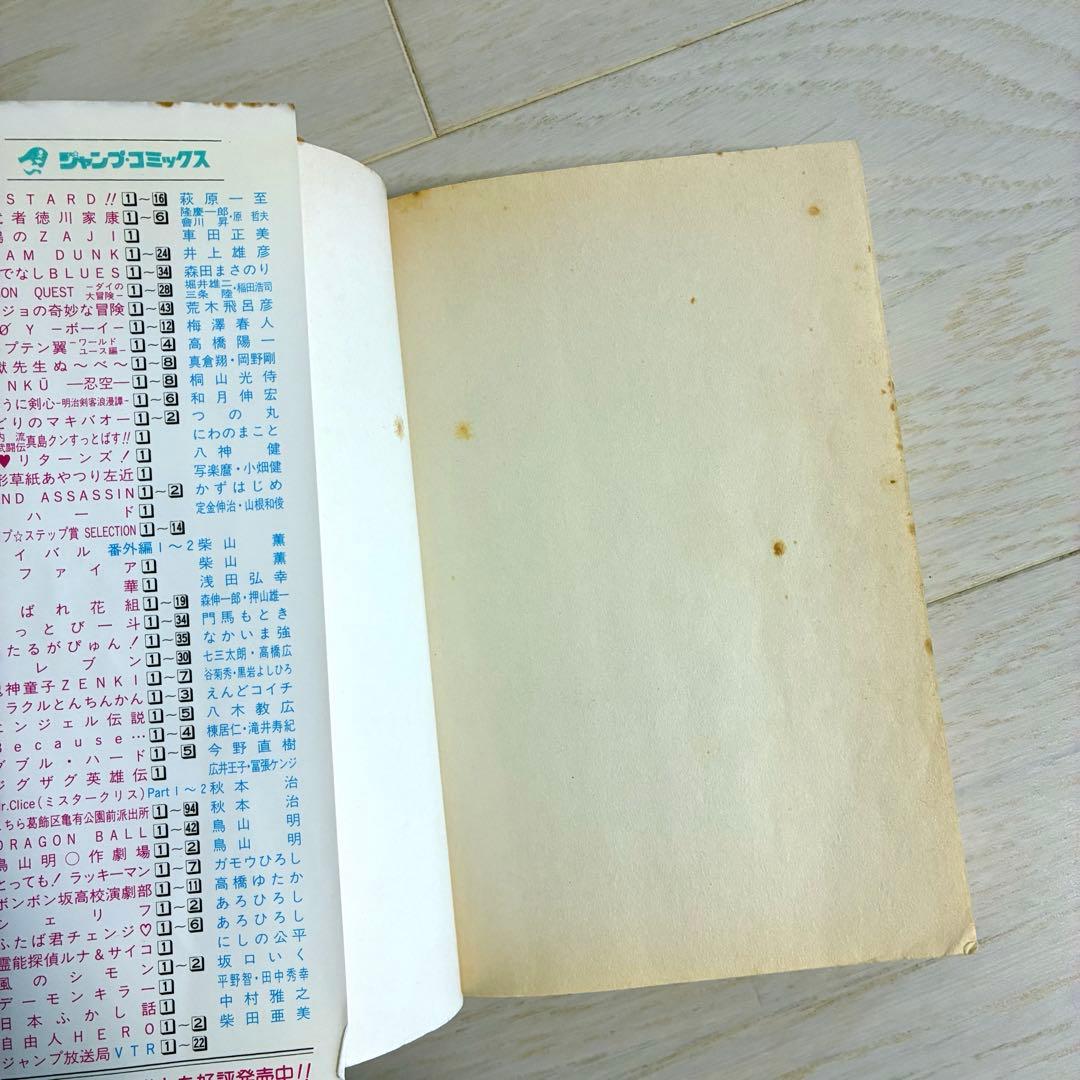 ジャンプ・コミックス
STARD!! 1~16 萩原一至
者徳川家康 1~6 隆慶一郎・原哲夫 會川昇
のZAJI 1 車田正美
AM DUNK 1~24 井上雄彦
でなしBLUES 1~34 森田まさのり
ON QUEST -ダイの大冒険- 1~28 堀井雄二 三条陸・稲田浩司
ジョの奇妙な冒険 1~43 荒木飛呂彦
Ø Y -ボーイ- 1~12 梅澤春人
プテン翼 -ワールドユース編- 1~4 高橋陽一
先生ぬ~べ~ 1~8 真倉翔・岡野剛
NKŪ —忍空— 1~8 桐山光侍
うに剣心-明治剣客浪漫譚- 1~6 和月伸宏
どりのマキバオー 1~2 つの丸
内流武闘伝真島クンすっとばす!! 1 にわのまこと
♥リターンズ! 1 八神健
形草紙あやつり左近 1 写楽麿・小畑健
ND ASSASSIN 1~2 かずはじめ
ハード 1 定金伸治・山根和俊
プ☆ステップ賞 SELECTION 1~14
イバル 番外編1~2 柴山薫
ファイア 1 柴山薫
華 1 浅田弘幸
ばれ花組 1~19 森伸一郎・押山雄一
っとび一斗 1~34 門馬もとき
たるがぴゅん! 1~35 なかいま強
レブン 1~30 七三太朗・高橋広
神童子ZENKI 1~7 谷菊秀・黒岩よしひろ
ラクルとんちんかん 1~3 えんどコイチ
ンジェル伝説 1~5 八木教広
Because… 1~4 棟居仁・滝井寿紀
ダブル・ハード 1~5 今野直樹
ジグザグ英雄伝 1 広井王子・冨張ケンジ
r.Clice(ミスタークリス) Part 1~2 秋本治
ちら葛飾区亀有公園前派出所 1~94 秋本治
DRAGON BALL 1~42 鳥山明
鳥山明○作劇場 1~2 鳥山明
とっても!ラッキーマン 1~7 ガモウひろし
ボンボン坂高校演劇部 1~11 高橋ゆたか
シェリフ 1~2 あろひろし
ふたば君チェンジ♡ 1~6 あろひろし
霊能探偵ルナ&サイコ 1 にしの公平
風のシモン 1~2 坂口いく
デーモンキラー 1 平野智・田中秀幸
日本ふかし話 1 中村雅之
自由人HERO 1~2 柴田亜美
ジャンプ放送局VTR 1~22
好評発売中!!